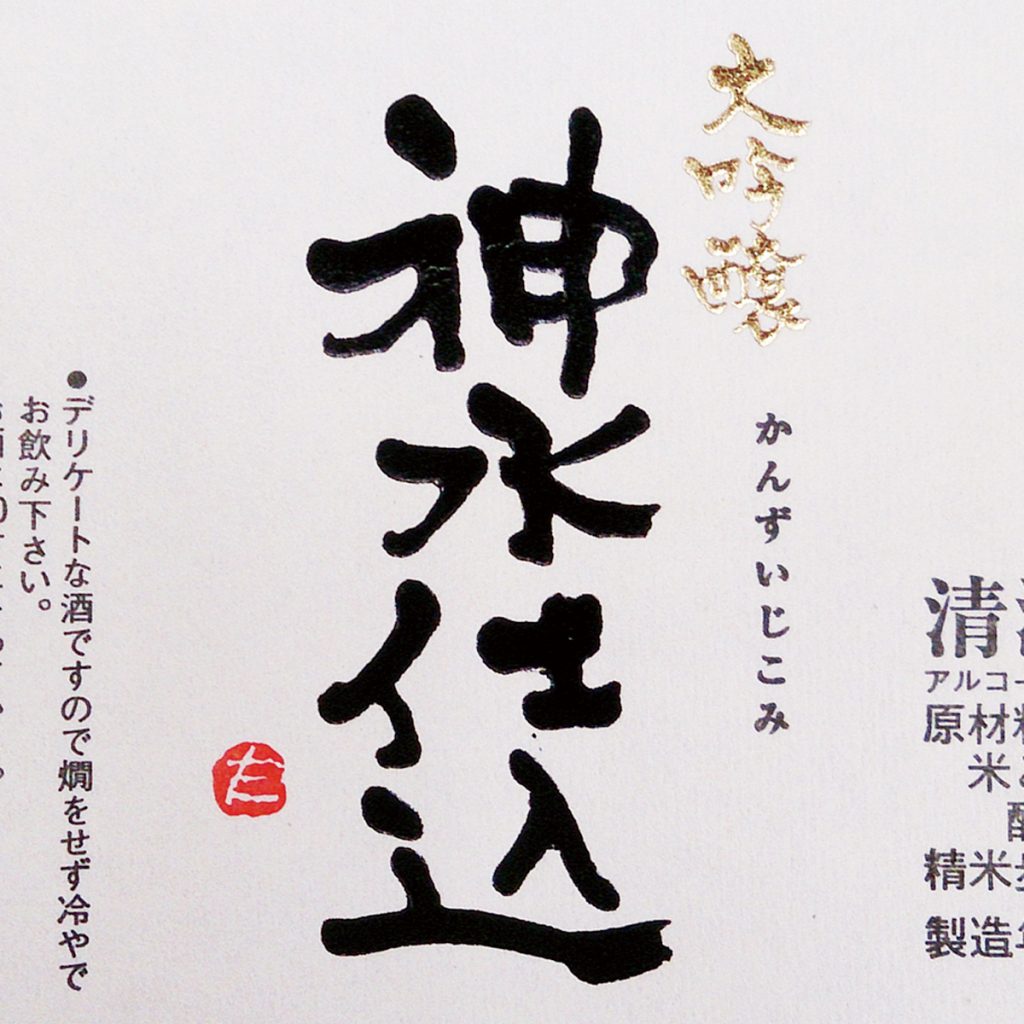 清
アルコー
原材料
米
精米歩
製造年
大吟醸
かんずいじこみ
神水仕込
た
●デリケートな酒ですので燗をせず冷やで
お飲み下さい。